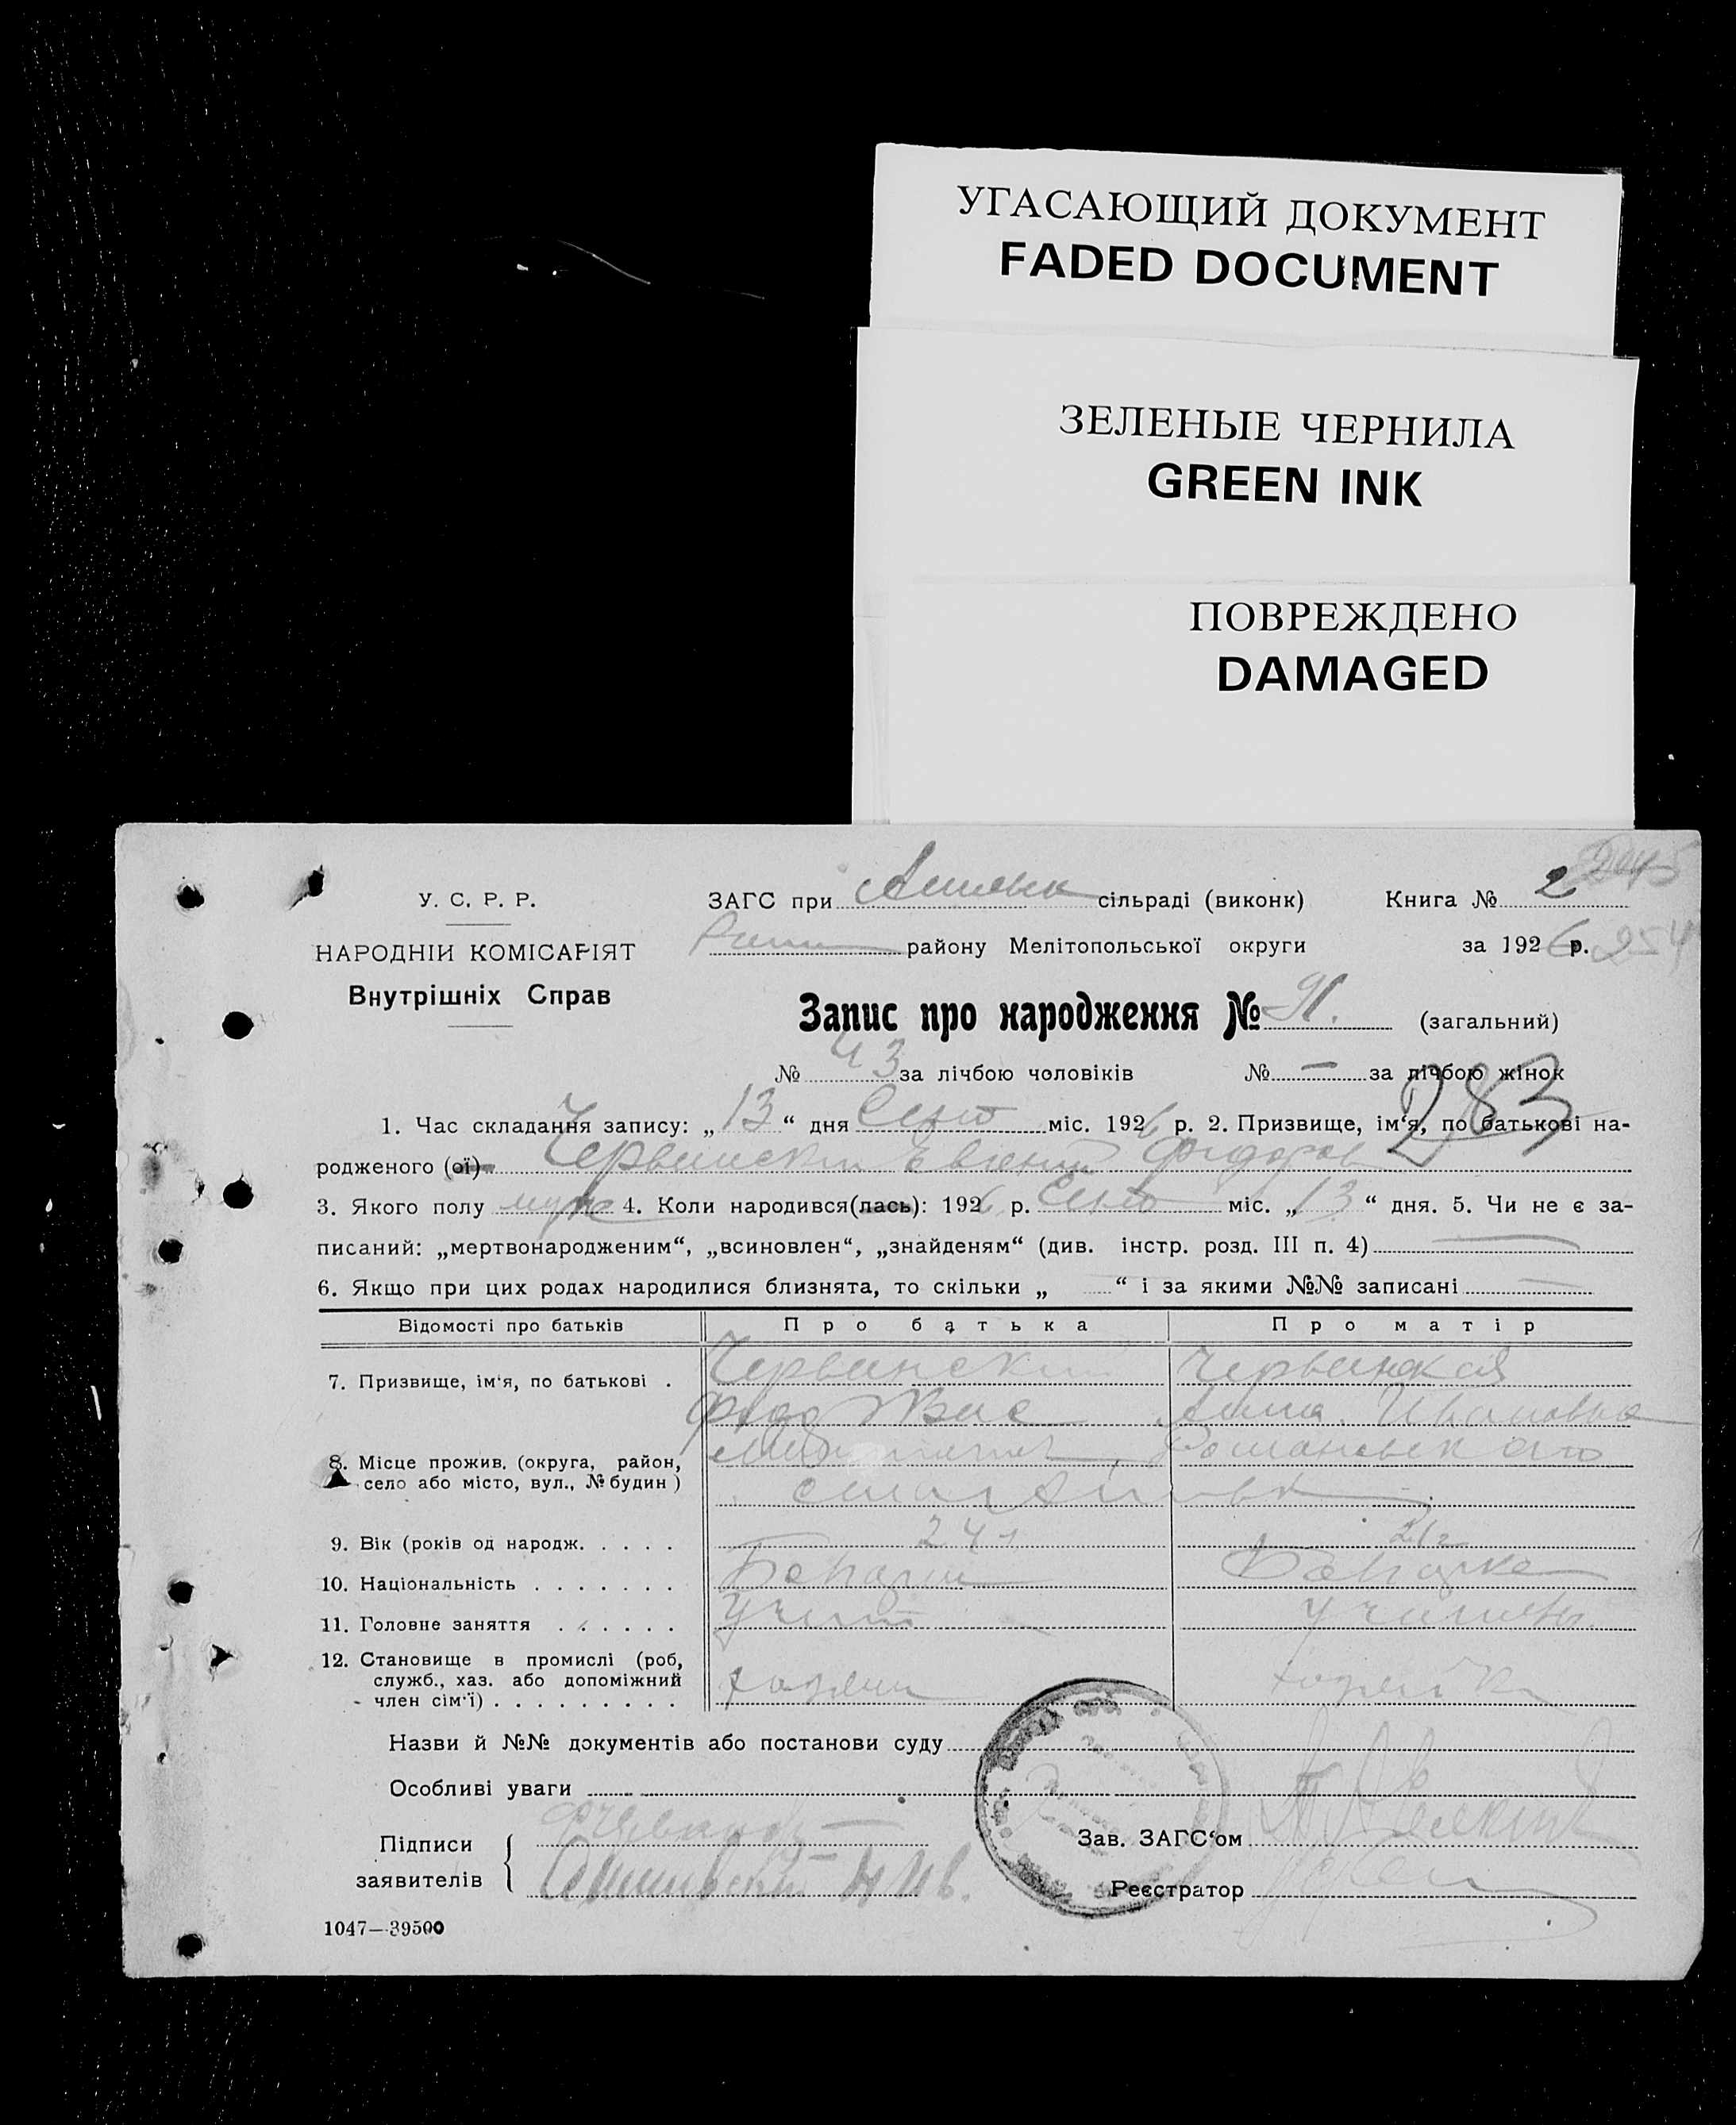 УГАСАЮЩИЙ ДОКУМЕНТ
FADED DOCUMENT
ЗЕЛЕНЫЕ ЧЕРНИЛА
GREEN INK
ПОВРЕЖДЕНО
DAMAGED
2245
У. С. Р. Р.
ЗАГС при сільраді (виконк) Книга № 2
НАРОДНІИ КОМІСАРІЯТ
району Мелітопольської округи за 1926 р. 254
Внутрішніх Справ
Запис про народження № 91. (загальний)
№ 43 за лічбою чоловіків № — за лічбою жінок
283
1. Час складання запису: „13“ дня Сент міс. 1926 р. 2. Призвище, ім‘я, по батькові на-
родженого (ої) Червинский Евгений Федоров
3. Якого полу муж 4. Коли народився(лась): 1926 р. Сент міс. „13“ дня. 5. Чи не є за-
писаний: „мертвонародженим“, „всиновлен“, „знайденям“ (див. інстр. розд. III п. 4) —
6. Якщо при цих родах народилися близнята, то скільки „ “ і за якими №№ записані —
Відомості про батьків Про батька Про матір
7. Призвище, ім‘я, по батькові . Червинский Червинская
Федо Вас Анна Ивановна
8. Місце прожив. (округа, район,
село або місто, вул., № будин )
9. Вік (років од народж. . . . . 24 21
10. Національність . . . . . . .
11. Головне заняття . . . . . . Учит
12. Становище в промислі (роб,
служб., хаз. або допоміжний
член сім‘ї) . . . . . . . . . хозяин хозяйка
Назви й №№ документів або постанови суду
Особливі уваги
Підписи
заявителів
Зав. ЗАГС‘ом
Реєстратор
1047—39500